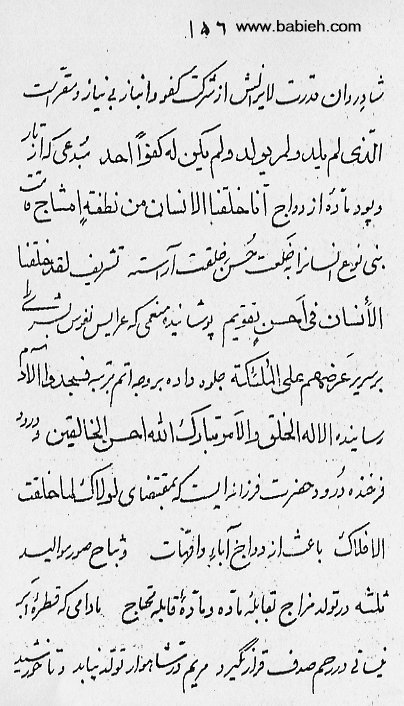 ١٥٦ www.babieh.com
شادروان قدرت لایزالش از شرکت کفو و انباز بی نیاز و مقر است
الّذی لم یلد و لم یولد و لم یکن له کفواً احد مبدعی که از تار
و پود مادهٔ ازدواج انا خلقنا الانسان من نطفةٍ امشاج قامت
بنی نوع انسانرا به خلعت حُسن خلقت آراسته تشریف لقد خلقنا
الأنسان فی أحسن تقویم پوشانیده منعمی که عرایس نفوس بشر را
بر سریر عَرضهم علی الملئکة جلوه داده بر وجه اتم مرتبه فسجدوا الآدم
رسانیده الا له الخلق والأمر تبارک الله احسن الخالقین و درود
فرخنده درود حضرت فرزانه ایست که بمقتضای لولاک لما خلقت
الافلاک باعث ازدواج آباءِ و امّهات و نتاج صور موالید
ثلثه در تولد مزاج تقابلهٔ ماده و مادهٔ قابله محتاج مادامی که قطرهٔ ابر
نیسانی در رحم صدف قرار نگیرد مریم درّ شاهوار تولّد نیابد و تا خورشید